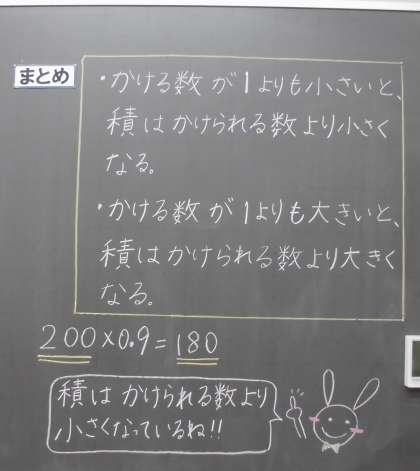 まとめ
・かける数が1よりも小さいと、
積はかけられる数より小さく
なる。
・かける数が1よりも大きいと、
積はかけられる数より大きく
なる。
200×0.9=180
積はかけられる数より
小さくなっているね!!